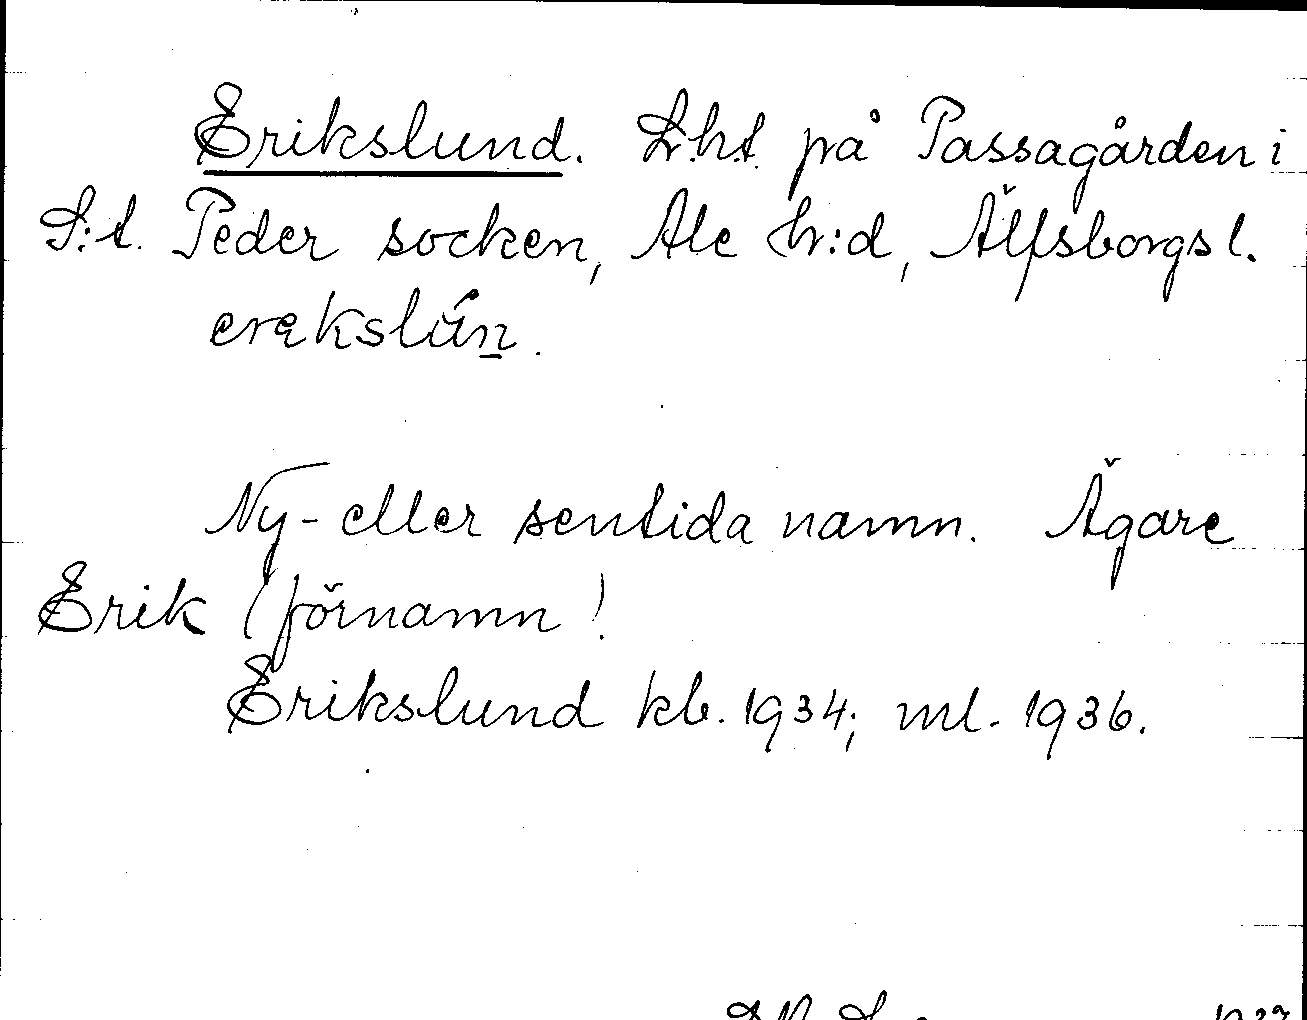 Erikslund. Lht. på Passagården i
S:t. Peder socken, Ale hr:d, Älfsborgs l.
erekslún.
Ny- eller sentida namn. Ägare
Erik (förnamn!
Erikslund kb. 1934; ml. 1936.